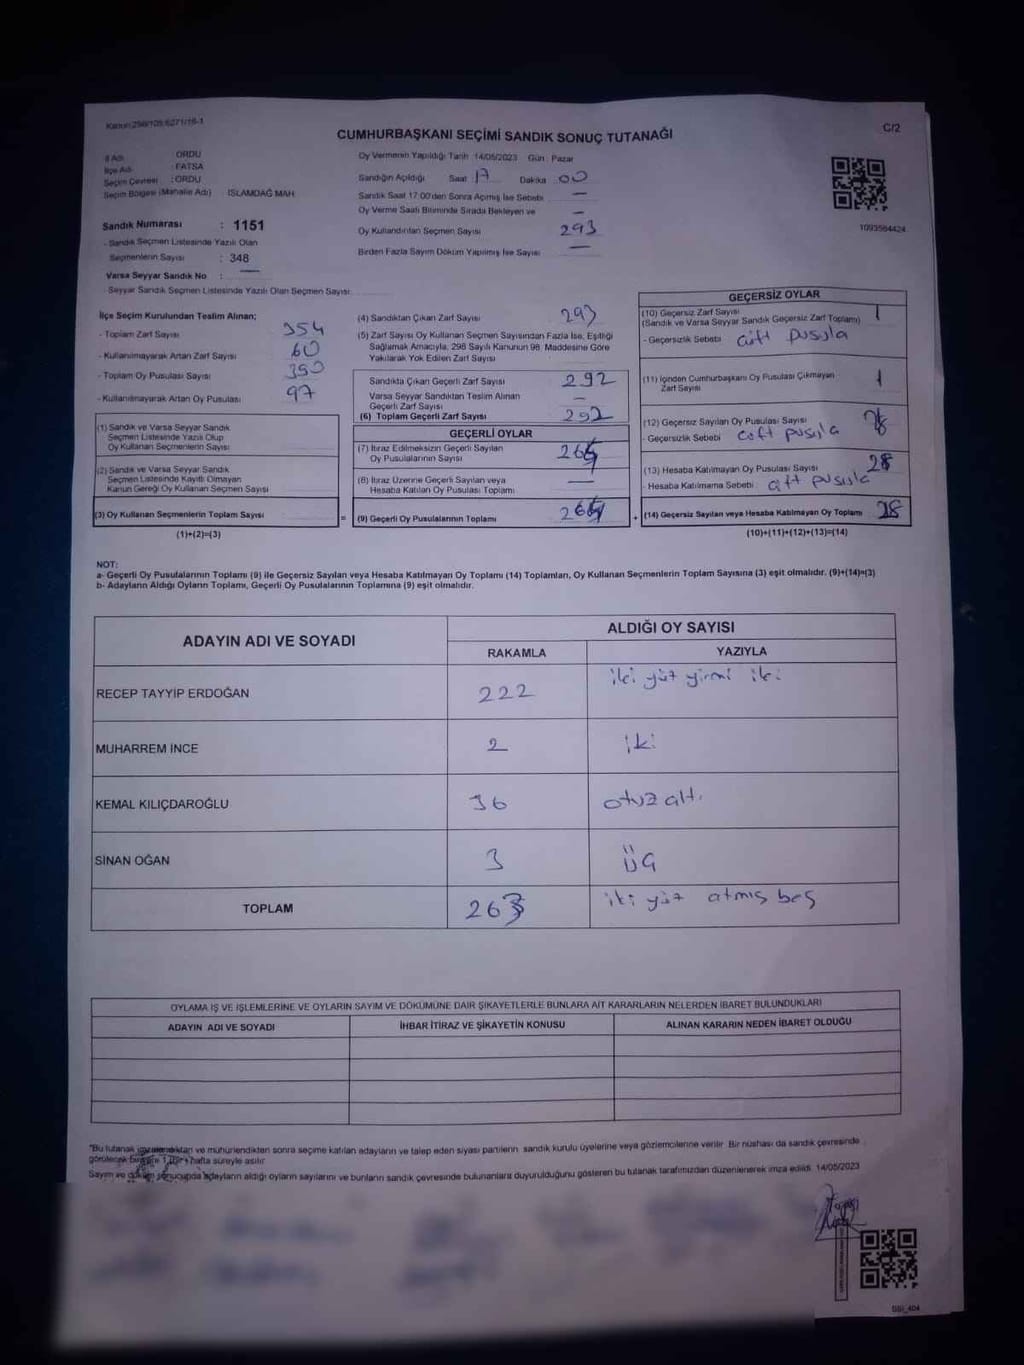 Kanun:298/105,6271/16-1
C/2
CUMHURBAŞKANI SEÇİMİ SANDIK SONUÇ TUTANAĞI
İl Adı : ORDU
İlçe Adı : FATSA
Seçim Çevresi : ORDU
Seçim Bölgesi (Mahalle Adı) İSLAMDAĞ MAH.
Sandık Numarası : 1151
- Sandık Seçmen Listesinde Yazılı Olan
Seçmenlerin Sayısı : 348
Varsa Seyyar Sandık No : —
- Seyyar Sandık Seçmen Listesinde Yazılı Olan Seçmen Sayısı:
Oy Vermenin Yapıldığı Tarih 14/05/2023 Gün : Pazar
Sandığın Açıldığı Saat 17 Dakika 00
Sandık Saat 17.00'den Sonra Açılmış İse Sebebi —
Oy Verme Saati Bitiminde Sırada Bekleyen ve —
Oy Kullandırılan Seçmen Sayısı 293
Birden Fazla Sayım Döküm Yapılmış İse Sayısı —
1093584424
İlçe Seçim Kurulundan Teslim Alınan;
- Toplam Zarf Sayısı 354
- Kullanılmayarak Artan Zarf Sayısı 60
- Toplam Oy Pusulası Sayısı 390
- Kullanılmayarak Artan Oy Pusulası 97
(1) Sandık ve Varsa Seyyar Sandık
Seçmen Listesinde Yazılı Olup
Oy Kullanan Seçmenlerin Sayısı
(2) Sandık ve Varsa Seyyar Sandık
Seçmen Listesinde Kayıtlı Olmayan
Kanun Gereği Oy Kullanan Seçmen Sayısı
(3) Oy Kullanan Seçmenlerin Toplam Sayısı
(1)+(2)=(3)
=
(4) Sandıktan Çıkan Zarf Sayısı 293
(5) Zarf Sayısı Oy Kullanan Seçmen Sayısından Fazla İse, Eşitliği
Sağlamak Amacıyla, 298 Sayılı Kanunun 98. Maddesine Göre
Yakılarak Yok Edilen Zarf Sayısı
Sandıkta Çıkan Geçerli Zarf Sayısı 292
Varsa Seyyar Sandıktan Teslim Alınan
Geçerli Zarf Sayısı —
(6) Toplam Geçerli Zarf Sayısı 292
GEÇERLİ OYLAR
(7) İtiraz Edilmeksizin Geçerli Sayılan
Oy Pusulalarının Sayısı
(8) İtiraz Üzerine Geçerli Sayılan veya
Hesaba Katılan Oy Pusulası Toplamı —
(9) Geçerli Oy Pusulalarının Toplamı
+
GEÇERSİZ OYLAR
(10) Geçersiz Zarf Sayısı 1
(Sandık ve Varsa Seyyar Sandık Geçersiz Zarf Toplamı)
- Geçersizlik Sebebi çift pusula
(11) İçinden Cumhurbaşkanı Oy Pusulası Çıkmayan 1
Zarf Sayısı
(12) Geçersiz Sayılan Oy Pusulası Sayısı
- Geçersizlik Sebebi çift pusula
(13) Hesaba Katılmayan Oy Pusulası Sayısı 28
- Hesaba Katılmama Sebebi çift pusula
(14) Geçersiz Sayılan veya Hesaba Katılmayan Oy Toplamı 28
(10)+(11)+(12)+(13)=(14)
NOT:
a- Geçerli Oy Pusulalarının Toplamı (9) ile Geçersiz Sayılan veya Hesaba Katılmayan Oy Toplamı (14) Toplamları, Oy Kullanan Seçmenlerin Toplam Sayısına (3) eşit olmalıdır. (9)+(14)=(3)
b- Adayların Aldığı Oyların Toplamı, Geçerli Oy Pusulalarının Toplamına (9) eşit olmalıdır.
ADAYIN ADI VE SOYADI
ALDIĞI OY SAYISI
RAKAMLA YAZIYLA
RECEP TAYYİP ERDOĞAN 222 iki yüz yirmi iki
MUHARREM İNCE 2 iki
KEMAL KILIÇDAROĞLU 36 otuz altı
SİNAN OĞAN 3 üç
TOPLAM 263 iki yüz atmış beş
OYLAMA İŞ VE İŞLEMLERİNE VE OYLARIN SAYIM VE DÖKÜMÜNE DAİR ŞİKAYETLERLE BUNLARA AİT KARARLARIN NELERDEN İBARET BULUNDUKLARI
ADAYIN ADI VE SOYADI İHBAR İTİRAZ VE ŞİKAYETİN KONUSU ALINAN KARARIN NEDEN İBARET OLDUĞU
"Bu tutanak imzalandıktan ve mühürlendikten sonra seçime katılan adayların ve talep eden siyasi partilerin sandık kurulu üyelerine veya gözlemcilerine verilir. Bir nüshası da sandık çevresinde
görülecek bir yere 1 hafta süreyle asılır.
Sayım ve döküm sonucunda adayların aldığı oyların sayılarını ve bunların sandık çevresinde bulunanlara duyurulduğunu gösteren bu tutanak tarafımızdan düzenlenerek imza edildi. 14/05/2023